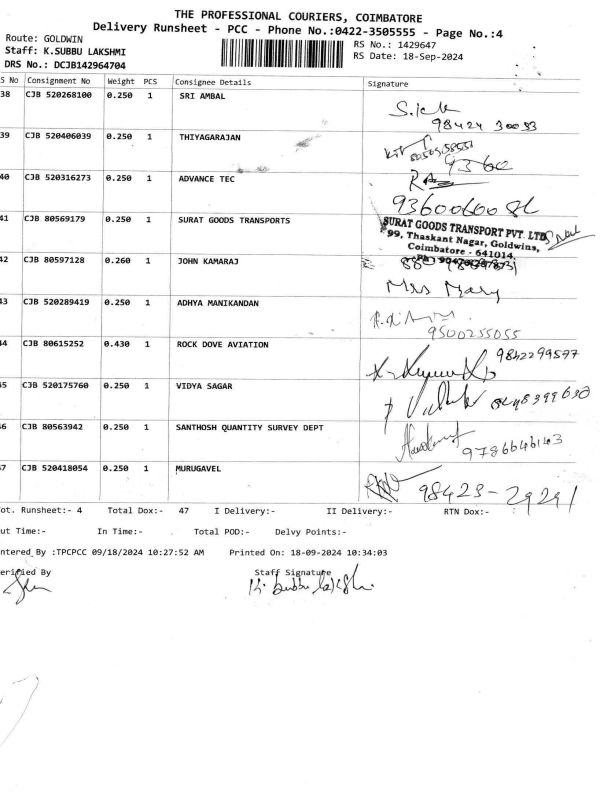 THE PROFESSIONAL COURIERS, COIMBATORE
Delivery Runsheet - PCC - Phone No.:0422-3505555 - Page No.:4
Route: GOLDWIN
RS No.: 1429647
Staff: K.SUBBU LAKSHMI
RS Date: 18-Sep-2024
DRS No.: DCJB142964704
S No Consignment No Weight PCS Consignee Details Signature
38 CJB 520268100 0.250 1 SRI AMBAL
98424 30033
39 CJB 520406039 0.250 1 THIYAGARAJAN
40 CJB 520316273 0.250 1 ADVANCE TEC
41 CJB 80569179 0.250 1 SURAT GOODS TRANSPORTS
SURAT GOODS TRANSPORT PVT. LTD
99, Thaskant Nagar, Goldwins,
Coimbatore - 641014.
42 CJB 80597128 0.260 1 JOHN KAMARAJ
Mrs Mary
43 CJB 520289419 0.250 1 ADHYA MANIKANDAN
9500255055
44 CJB 80615252 0.430 1 ROCK DOVE AVIATION
9842299577
45 CJB 520175760 0.250 1 VIDYA SAGAR
46 CJB 80563942 0.250 1 SANTHOSH QUANTITY SURVEY DEPT
9786646143
47 CJB 520418054 0.250 1 MURUGAVEL
98423-29291
ot. Runsheet:- 4 Total Dox:- 47 I Delivery:- II Delivery:- RTN Dox:-
ut Time:- In Time:- Total POD:- Delvy Points:-
ntered By :TPCPCC 09/18/2024 10:27:52 AM Printed On: 18-09-2024 10:34:03
erified By Staff Signature
K. Subbu Lakshmi